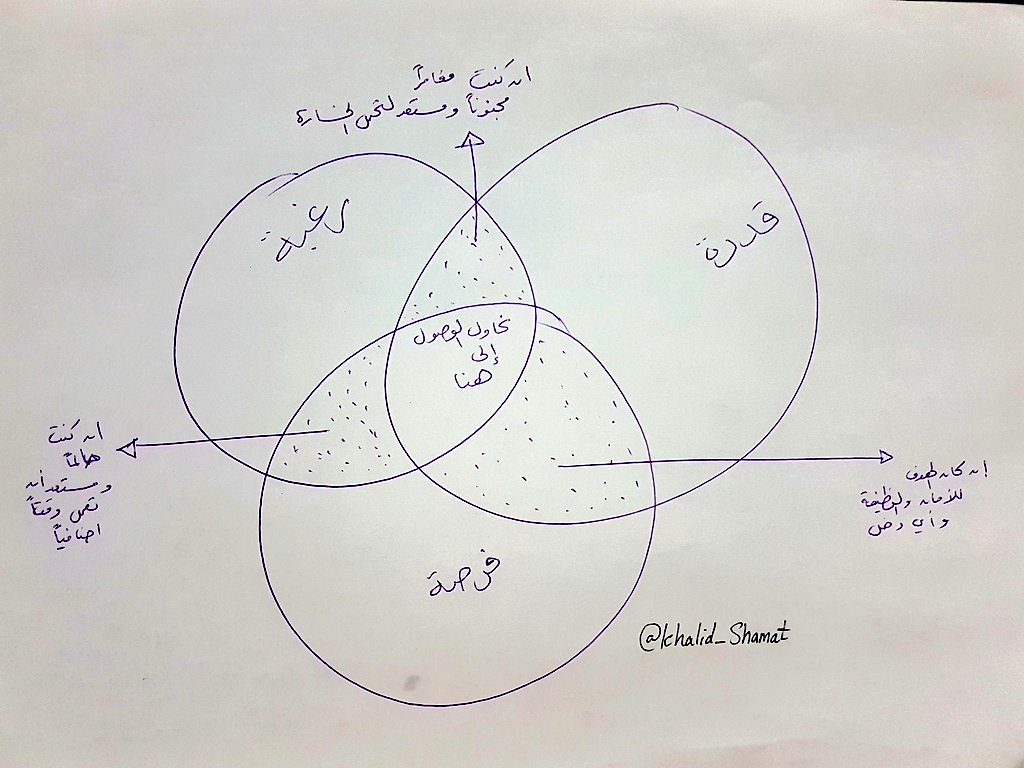 ان كنت مغامراً
مجنوناً ومستعد لتحمل الخسارة
رغبة
قدرة
نحاول الوصول
إلى
هنا
ان كنت
حالماً
ومستعد ان
تعمل وقتاً
اضافياً
إن كان الهدف
للأمان والوظيفة
وأي دخل
فرصة
@khalid_Shamat